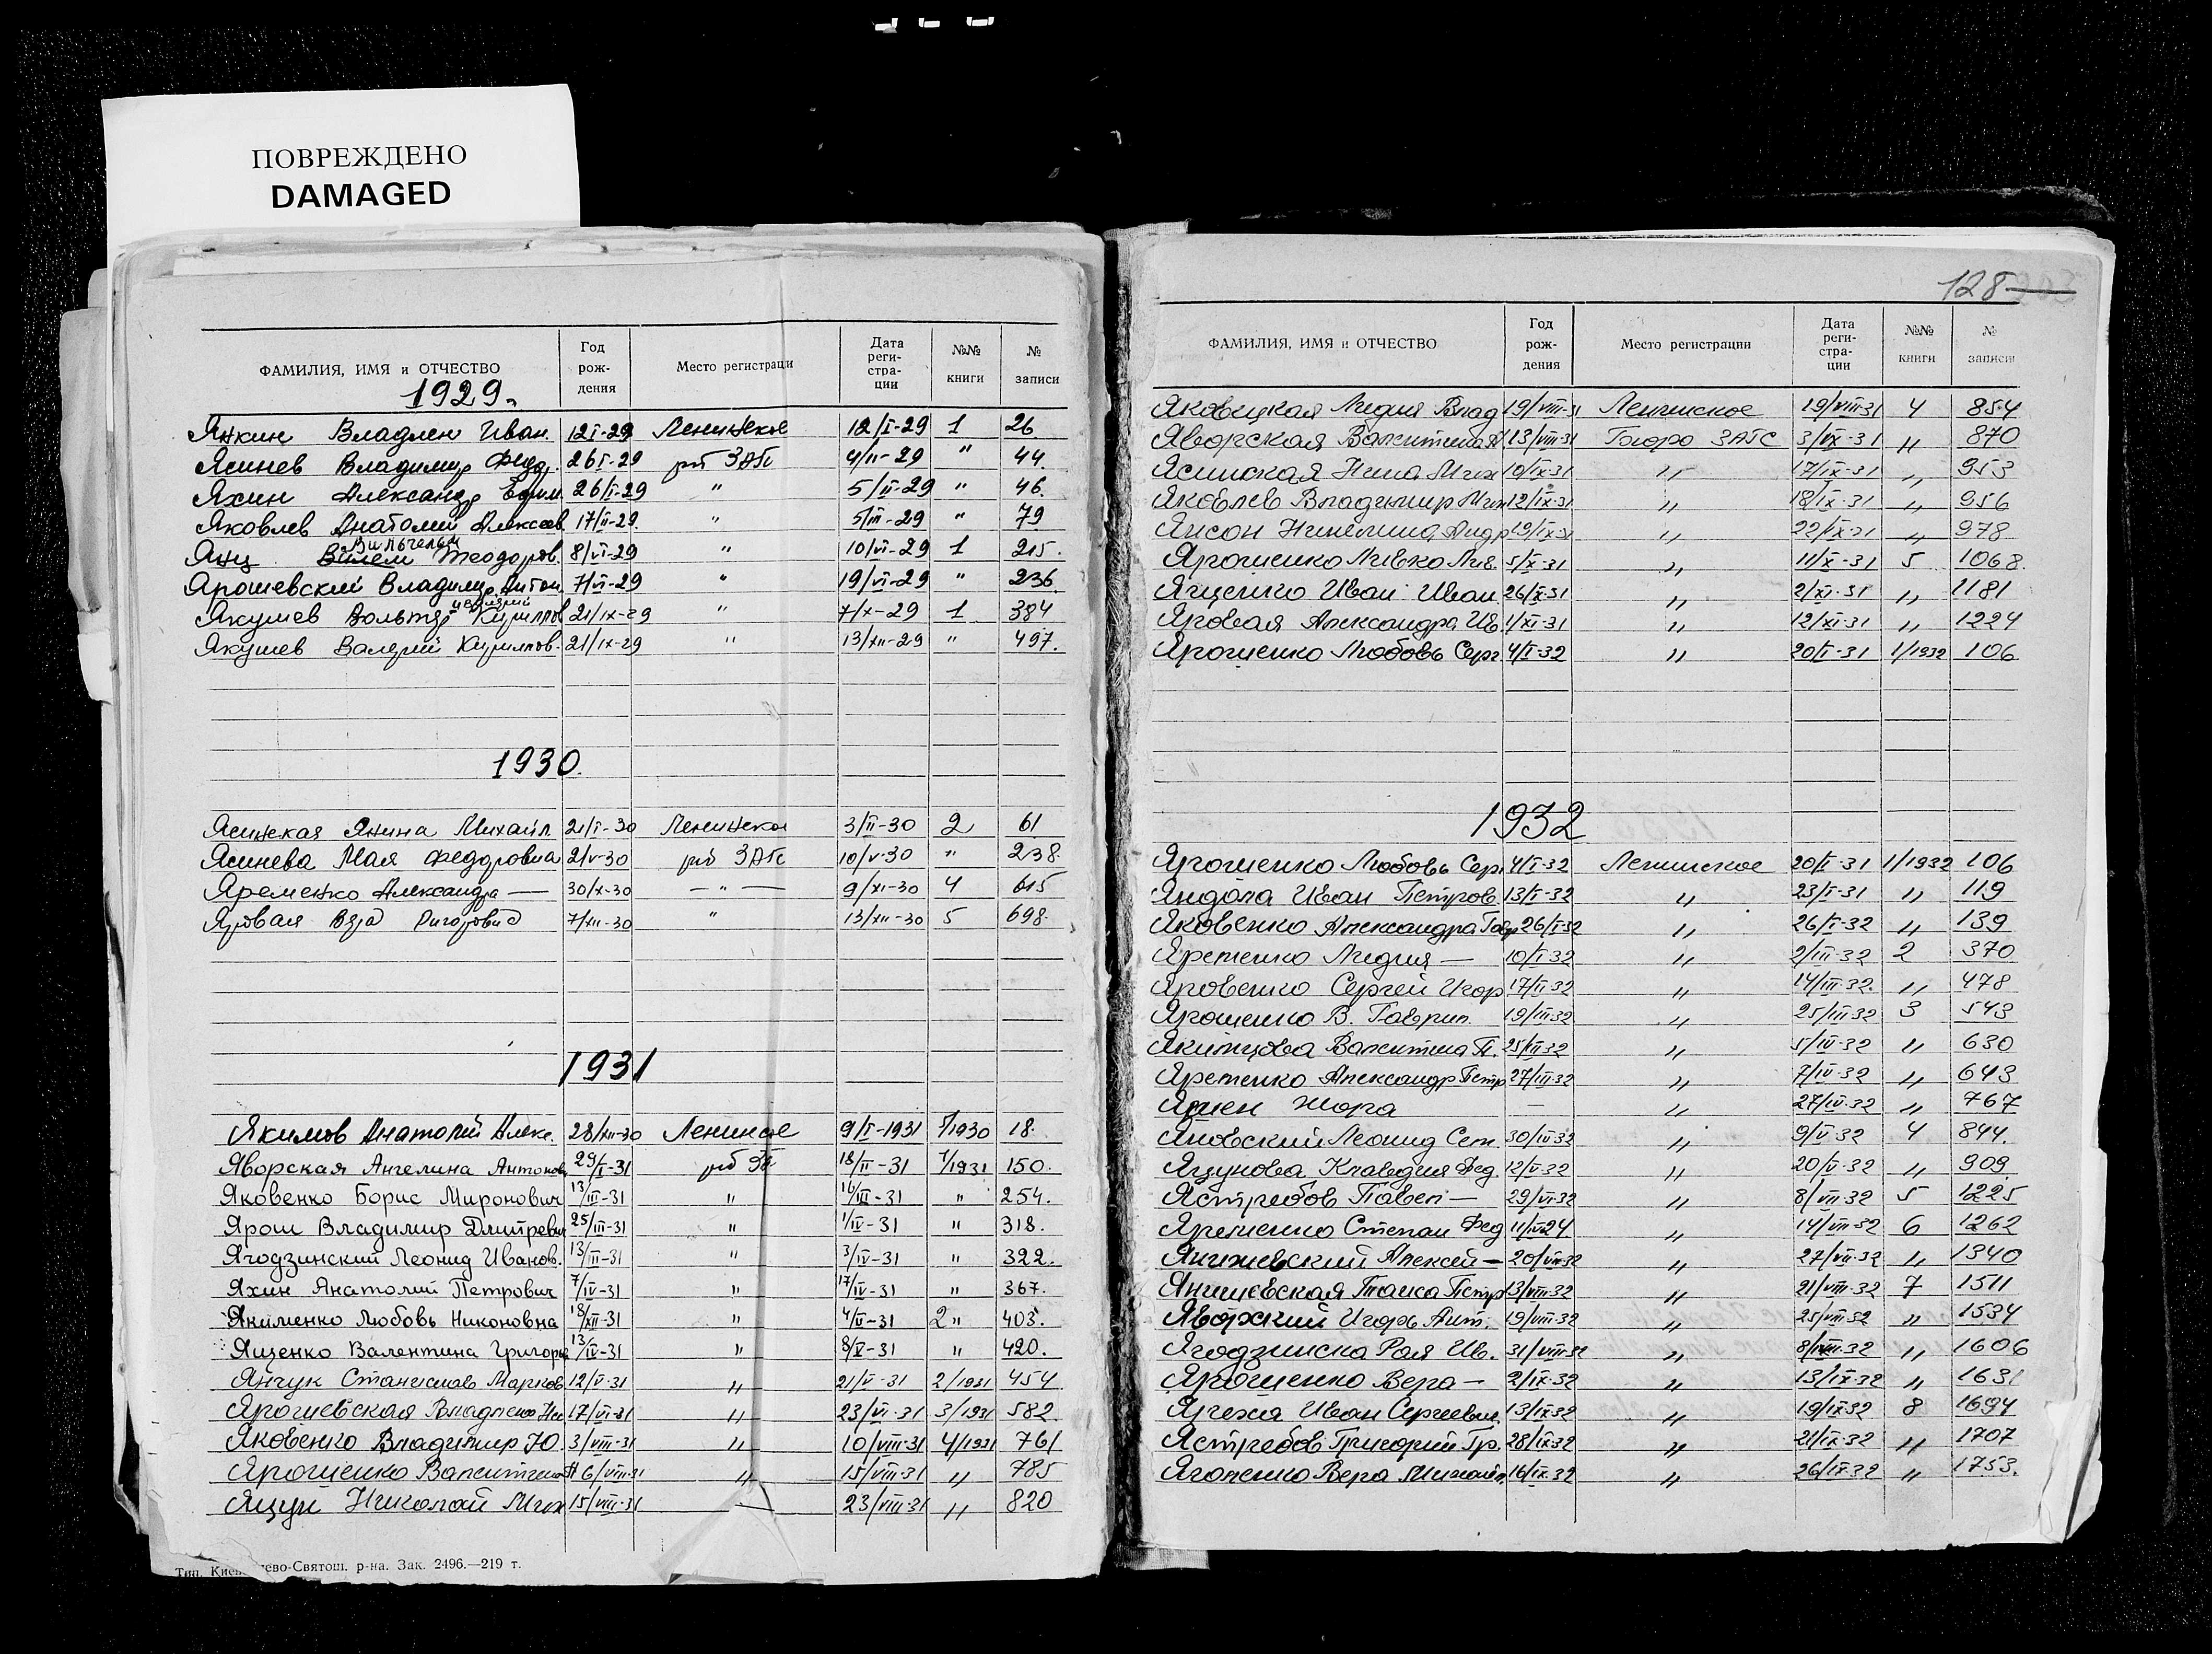 ПОВРЕЖДЕНО
DAMAGED
ФАМИЛИЯ, ИМЯ и ОТЧЕСТВО Год рождения Место регистраци Дата регистрации №№ книги № записи
1929.
Янкин Владлен Иван. 12/I-29 Ленинское 12/I-29 1 26
Ясинев Владимир Федор. 26/I-29 рб ЗАГС 4/II-29 " 44.
Яхин Александр Ефим. 26/I-29 " 5/II-29 " 46.
Яковлев Анатолий Алексеев. 17/II-29 " 5/III-29 " 79
Вильгельм
Янц Вилем Теодоров. 8/VI-29 " 10/VI-29 1 215.
Ярошевский Владимир Антон. 7/VI-29 " 19/VI-29 " 236
Якушев Вольтер Кириллов 21/IX-29 " 7/X-29 1 384
Якушев Валерий Кириллов. 21/IX-29 " 13/XII-29 " 497.
1930.
Ясинская Янина Михайл. 21/I-30 Ленинское 3/II-30 2 61
Ясинева Мая Федоровна 2/V-30 рб ЗАГС 10/V-30 " 238.
Яременко Александра — 30/X-30 — " — 9/XI-30 4 615
Яровая 7/XII-30 " 13/XII-30 5 698.
1931
Якимов Анатолий Алекс. 28/XII-30 Ленинское 9/I-1931 1/1930 18.
Яворская Ангелина Антонов. 29/I-31 рб 18/II-31 1/1931 150.
Яковенко Борис Миронович 13/III-31 " 16/III-31 " 254.
Ярош Владимир Дмитревич 25/III-31 " 1/IV-31 " 318.
Ягодзинский Леонид Иванов. 13/III-31 " 3/IV-31 " 322.
Яхин Анатолий Петрович 7/IV-31 " 17/IV-31 " 367.
Якименко Любовь Никоновна 18/XII-31 " 4/V-31 2 " 403.
Ященко Валентина Григорьев 13/IV-31 " 8/V-31 " 420.
Янчук Станислав Марков. 12/V-31 " 21/V-31 2/1931 454
Ярошевская 17/VI-31 " 23/VI-31 3/1931 582.
Яковенко Владимир Ю. 3/VIII-31 " 10/VIII-31 4/1931 761
Ярошенко Валентина 6/VIII-31 " 15/VIII-31 " 785
Яцун Николай Мих 15/VIII-31 — 23/VIII-31 " 820
Тип. Киев ево-Святош. р-на. Зак. 2496.—219 т.
128
ФАМИЛИЯ, ИМЯ и ОТЧЕСТВО Год рождения Место регистрации Дата регистрации №№ книги № записи
Яковицкая Лидия Влад 19/VIII-31 Ленинское 19/VIII-31 4 854
Яворская Валентина 13/VIII-31 Бюро ЗАГС 3/IX-31 " 870
Ясинская Нина Мих 10/IX-31 " 17/IX-31 " 953
Яковлев Владимир Мих 12/IX-31 " 18/IX-31 " 956
Янсон Андр 19/IX-31 " 22/IX-31 " 978
Ярошенко 5/X-31 " 11/X-31 5 1068
Ященко Иван Иван 26/X-31 " 2/XI-31 " 1181
Яровая Александра Ив. 1/XI-31 " 12/XI-31 " 1224
Ярошенко Любовь Серг. 4/I-32 " 20/I-31 1/1932 106
1932
Ярошенко Любовь Сер. 4/I-32 Ленинское 20/I-31 1/1932 106
Яндола Иван Петров. 13/I-32 " 23/I-31 " 119
Яковенко Александра 26/I-32 " 26/I-32 " 139
Яременко Лидия — 10/I-32 " 2/III-32 2 370
Яковенко Сергей Игор 17/II-32 " 14/III-32. " 478
Ярошенко В. Гаврил. 19/III-32 " 25/III-32 3 543
Якимцова Валентина П. 25/III-32 " 5/IV-32 " 630
Яременко Александр Петр 27/III-32 " 7/IV-32 " 643
Жора — " 27/IV-32 " 767
Яновский Леонид Сем. 30/IV-32 " 9/V-32 4 844.
Яцунова Клавдия Фед. 12/V-32 " 20/V-32 " 909
Ястребов Павел — 29/VI-32 " 8/VII-32 5 1225
Яременко Степан Фед 11/IV-24 " 14/VII-32 6 1262
Янишевский Алексей — 20/VII-32 " 27/VII-32 " 1340
Янишевская Таиса Петр 13/VIII-32 " 21/VIII-32 7 1511
Яворский Игорь Ант. 19/VIII-32 " 25/VIII-32 " 1534
Ягодзинска Рая Ив. 31/VIII-32 " 8/IX-32 " 1606
Ярошенко Вера — 2/IX-32 " 13/IX-32 " 1631
Иван Сергеевич 13/IX-32 " 19/IX-32 8 1694
Ястребов Григорий Гр. 28/IX-32 " 21/IX-32 " 1707
Вера Михайл. 16/IX-32 " 26/IX-32 " 1753.